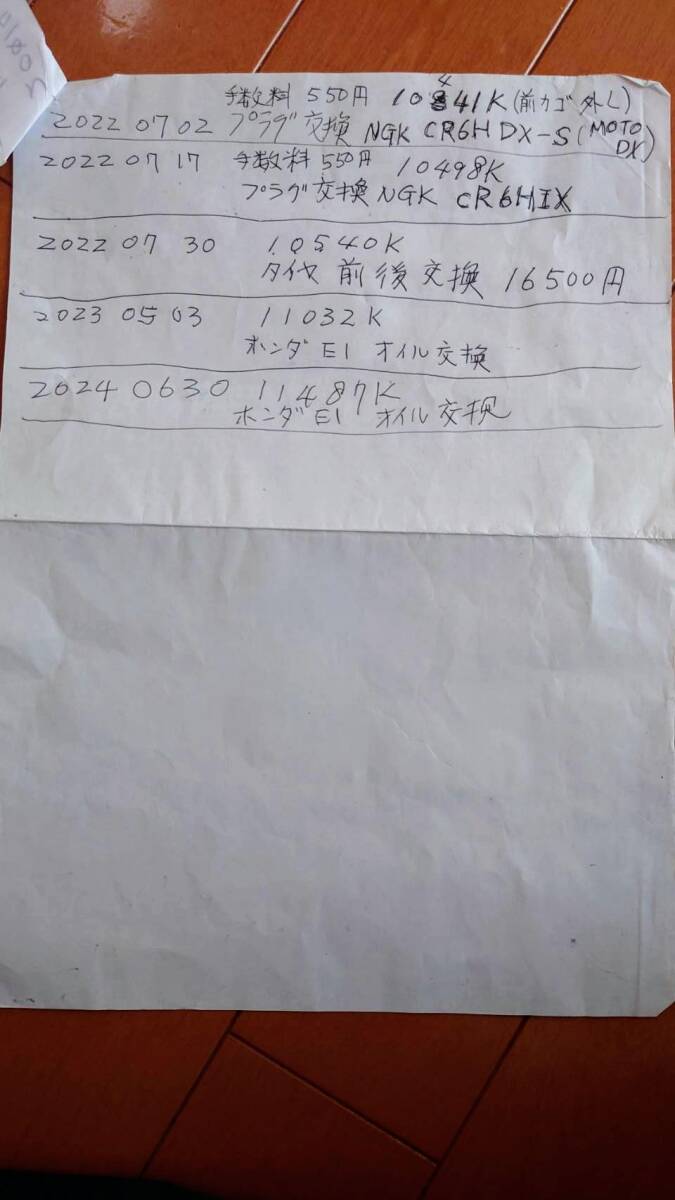 手数料 550円 10441K (前カゴ外し)
2022 07 02 プラグ交換 NGK CR6HDX-S (MOTO DX)
2022 07 17 手数料 550円 10498K
プラグ交換 NGK CR6HIX
2022 07 30 10540K
タイヤ 前後交換 16500円
2023 05 03 11032K
ホンダE1 オイル交換
2024 0630 11487K
ホンダE1 オイル交換